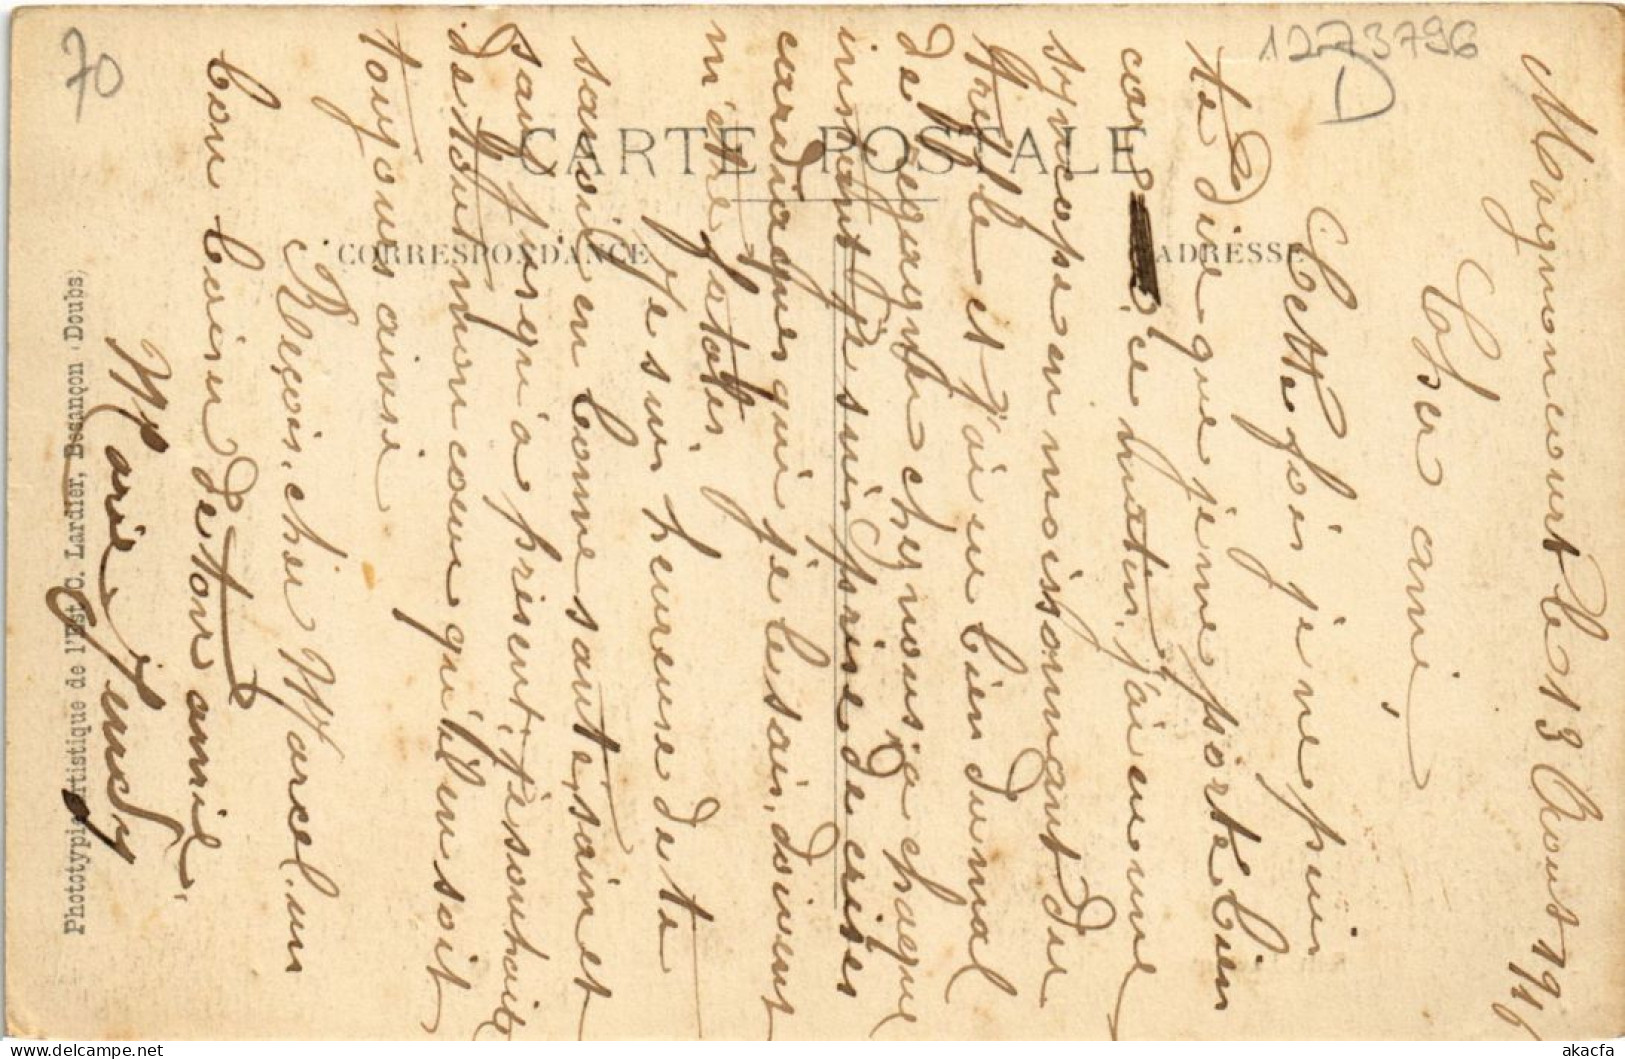 Magnoncourt le 13 Août 1916
Cher ami,
Cette fois je ne puis
te dire que je me porte bien
car ce matin, j'ai eu une
syncope en moissonnant du
trèfle et j'ai eu bien du mal
de regagner chez nous; à chaque
instant je suis prise de crises
cardiaques qui, je le sais, doivent
m'être fatales.
Je suis heureuse de te
savoir en bonne santé, sain et
sauf jusqu'à présent; je souhaite
de tout mon cœur qu'il en soit
toujours ainsi.
Reçois, cher Marcel, un
bon baiser de ton amie
Marie Jeudy
CARTE POSTALE
CORRESPONDANCE
ADRESSE
Phototypie Artistique de l'Est C. Lardier, Besançon (Doubs)
70
1273796
D
akacfa